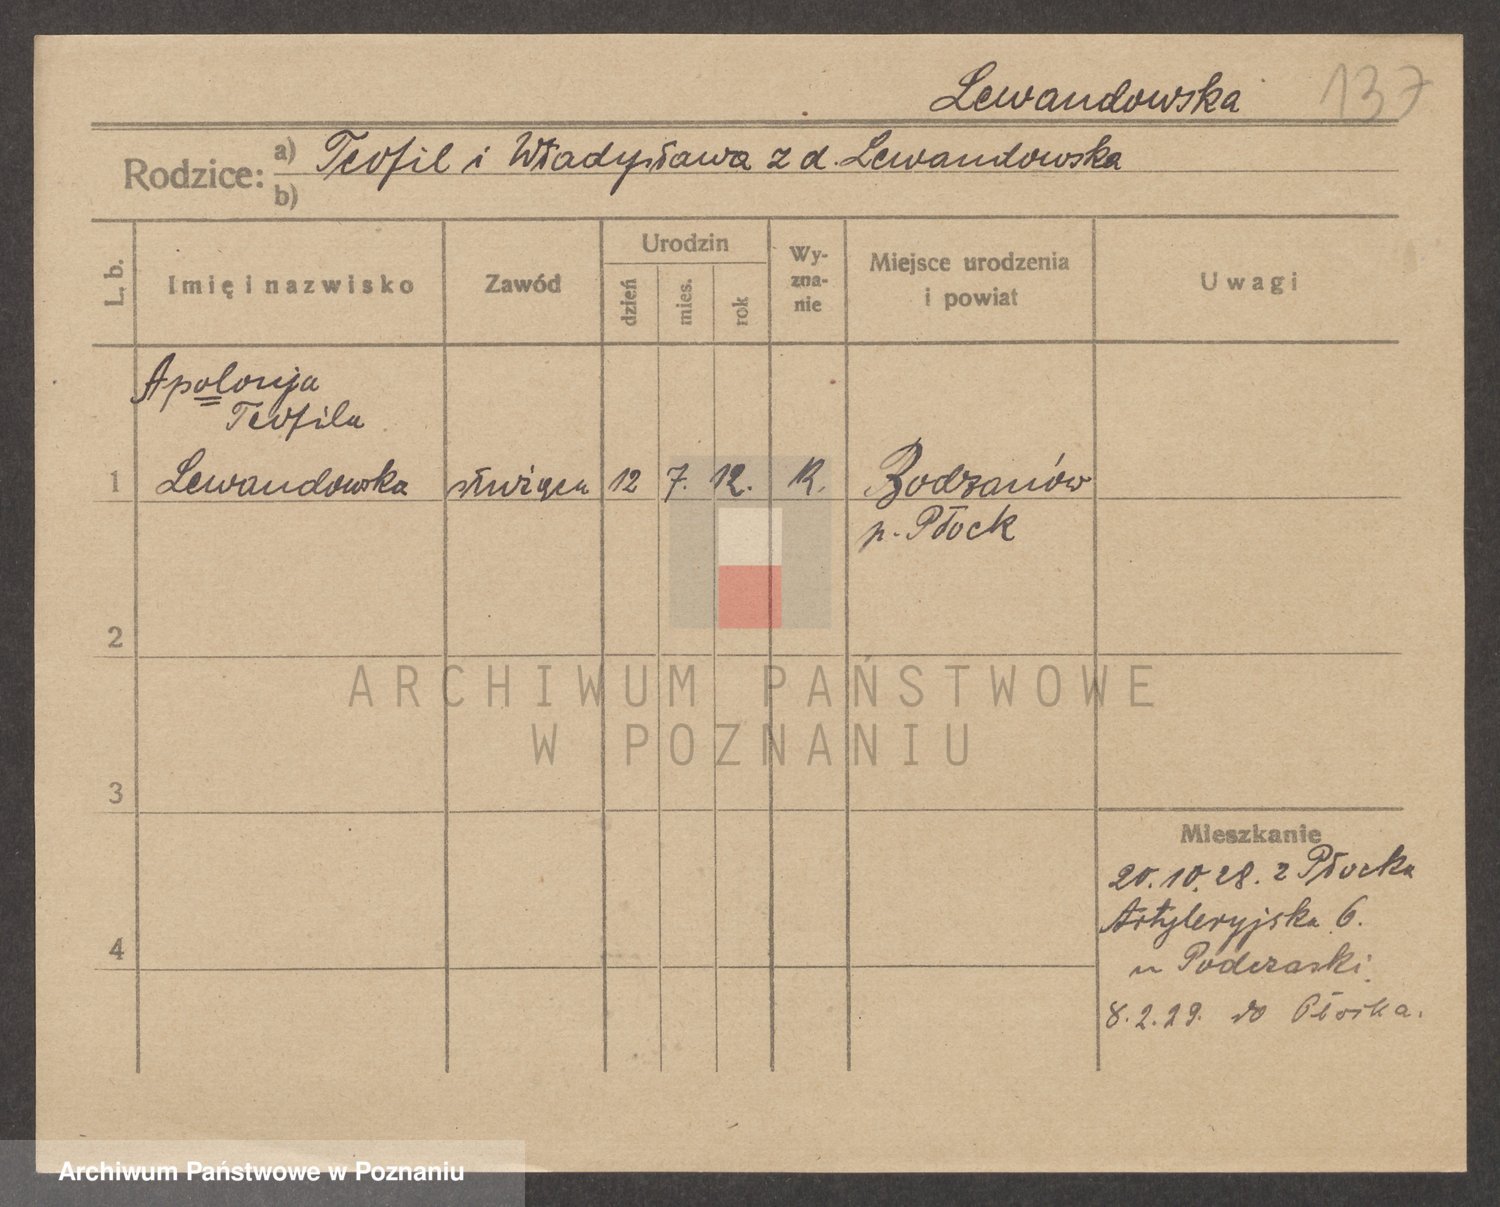 Lewandowska 137
Rodzice: a) Teofil i Władysława z d. Lewandowska
b)
L. b.
Imię i nazwisko
Zawód
Urodzin
dzień
mies.
rok
Wy-
zna-
nie
Miejsce urodzenia
i powiat
Uwagi
Apolonja
Teofila
1 Lewandowska służąca 12 7. 12. R. Bodzanów
p. Płock
2
ARCHIWUM PAŃSTWOWE
W POZNANIU
3
Mieszkanie
20.10.28. z Płocka
Artyleryjska 6.
u Podczaski
4
8.2.29. do Płocka.
Archiwum Państwowe w Poznaniu